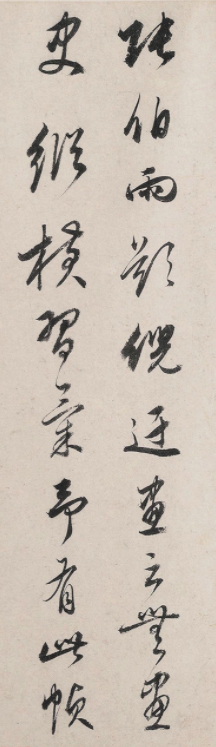 張伯雨題倪迂畫云無畫
史縱橫習氣予有此幀